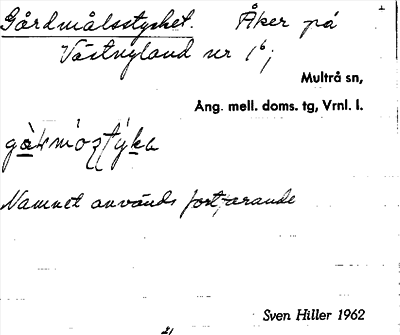 Gårdmålsstycket. Åker på
Västnyland nr 1⁶;
Multrå sn,
Ang. mell. doms. tg, Vrnl. l.
Namnet används fortfarande
Sven Hiller 1962